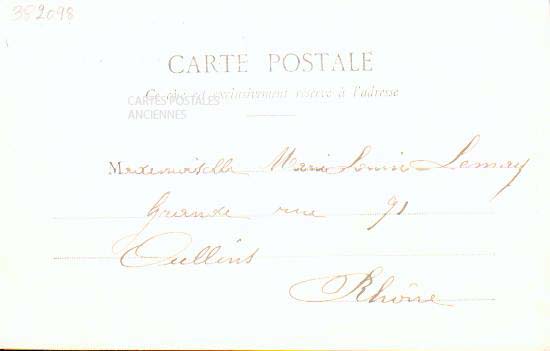 382098
CARTE POSTALE
Ce côté est exclusivement réservé à l'adresse
CARTES POSTALES
ANCIENNES
Mademoiselle Marie Louise Lemay
Grande rue 91
Oullins
Rhône